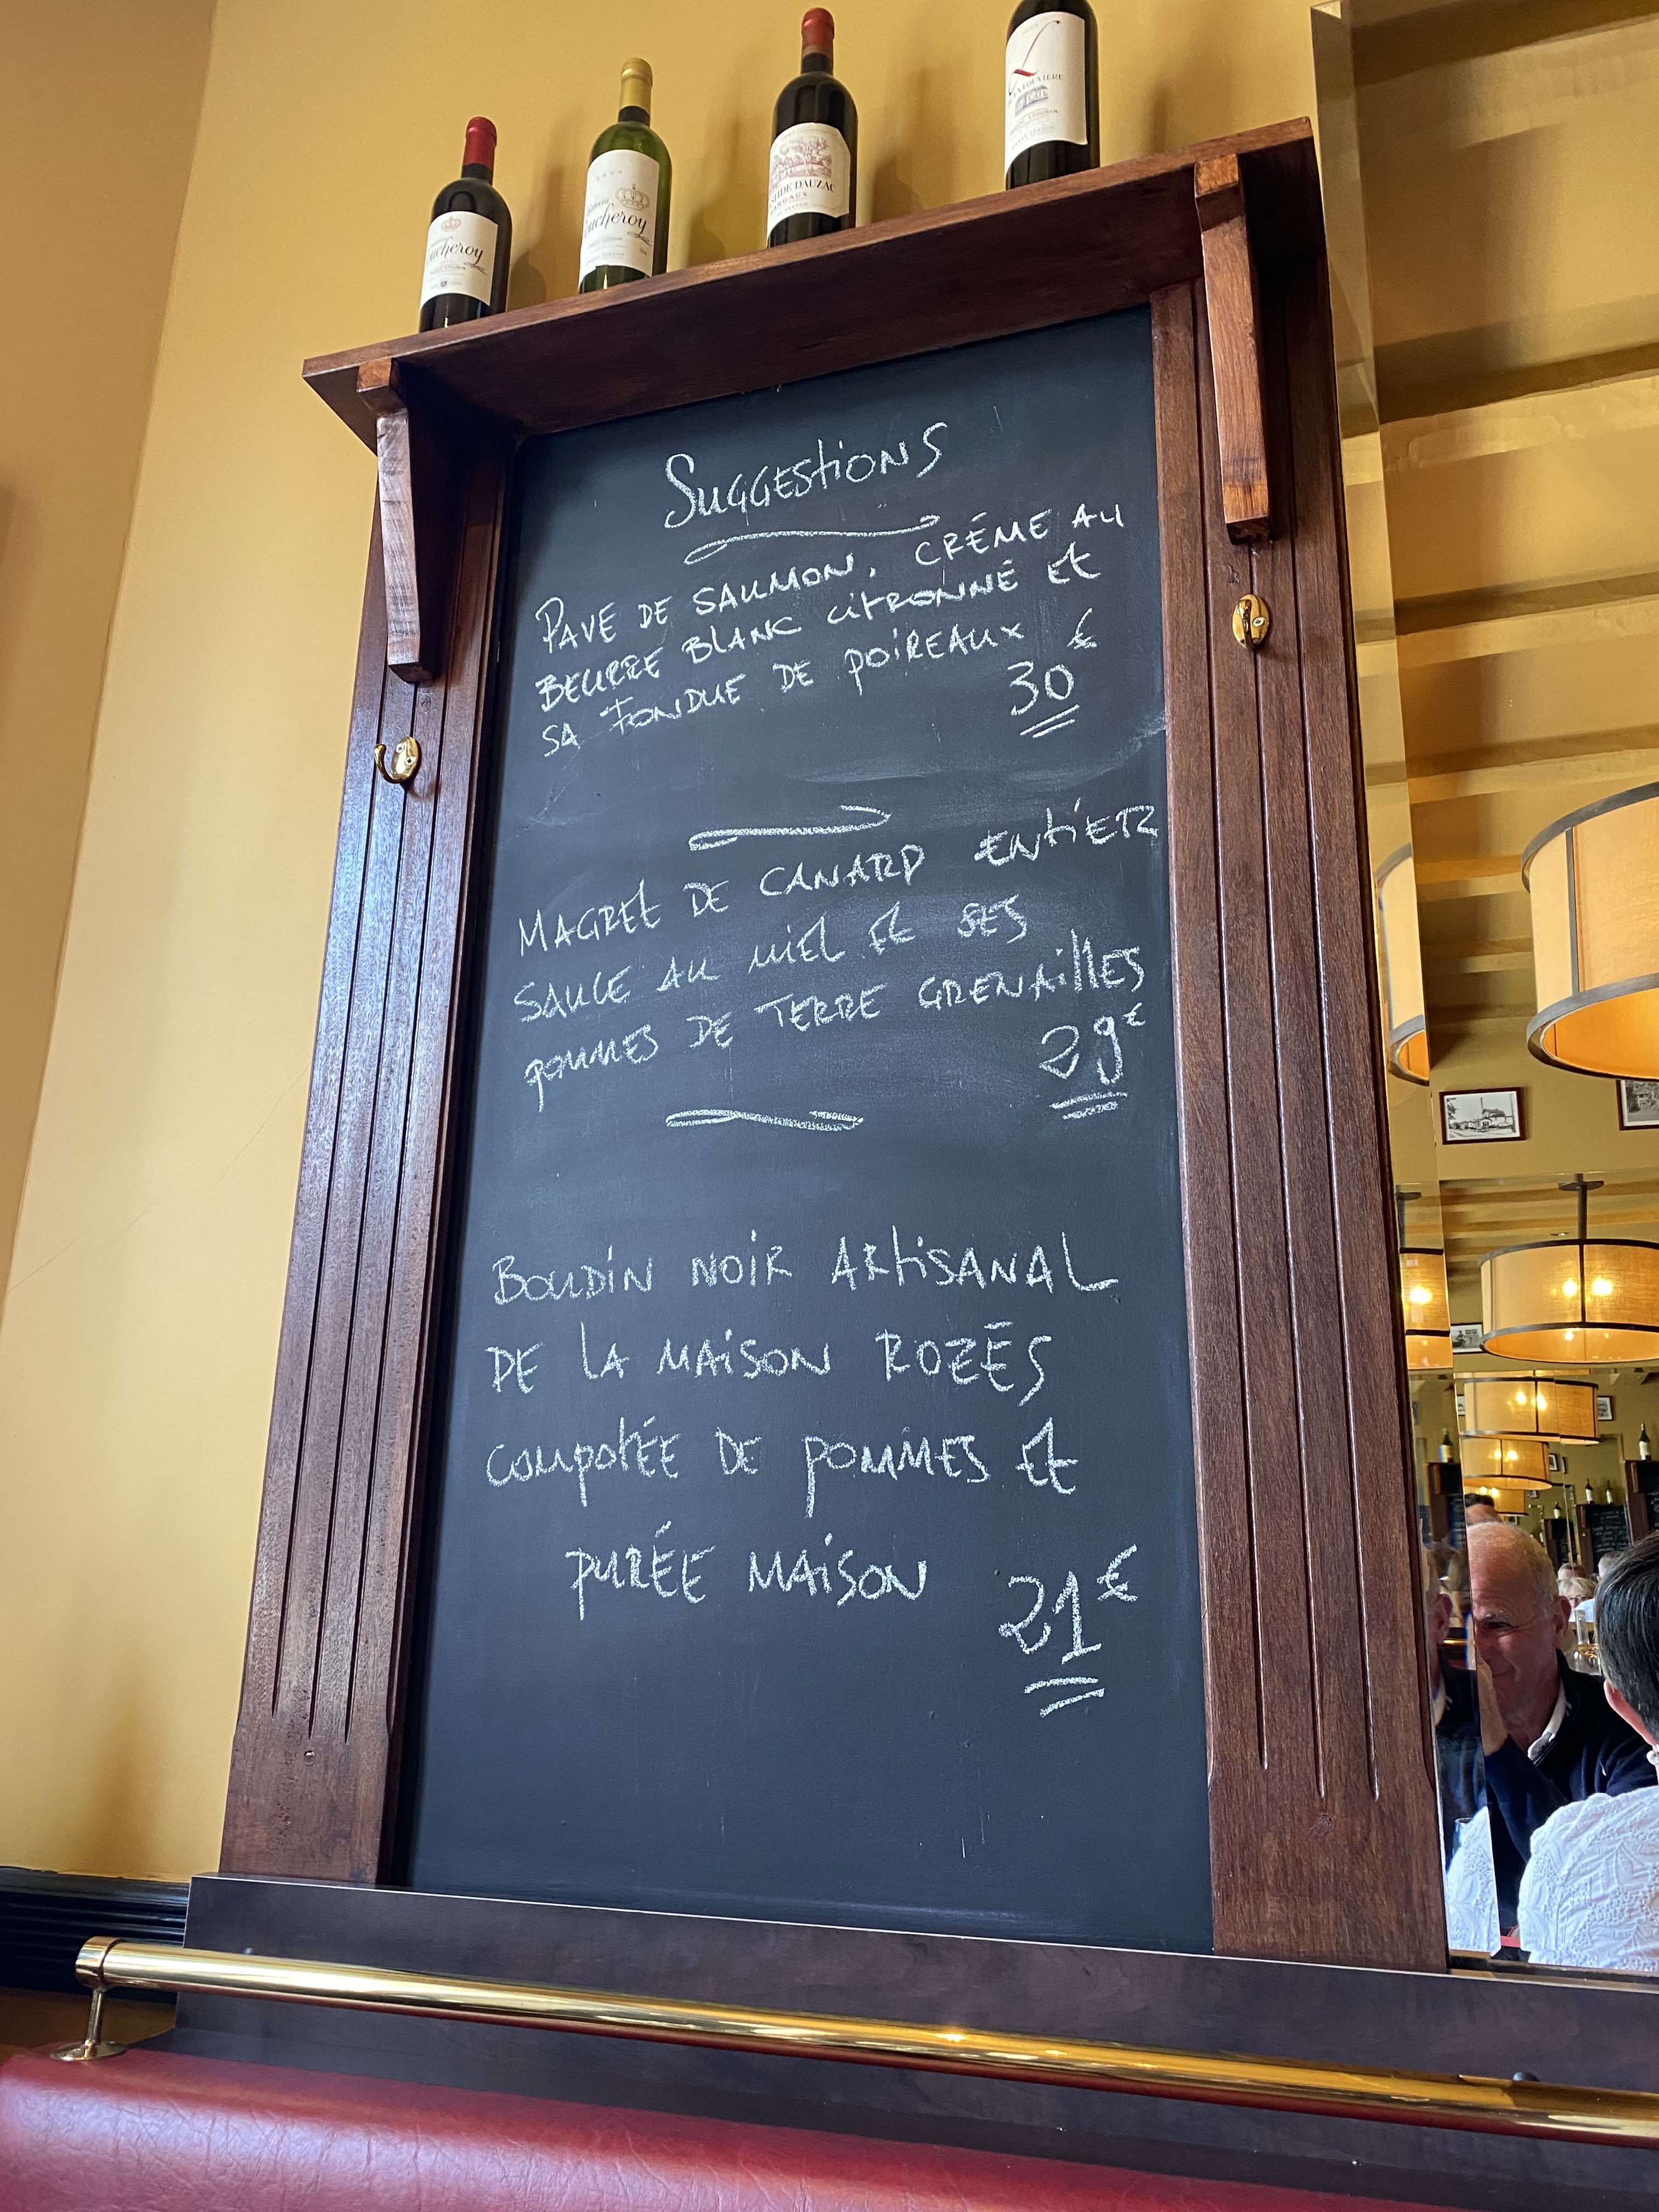 Coucheroy
Coucheroy
DAUZAC
L
Suggestions
PAVÉ DE SAUMON, CRÉME AU
BEURRE BLANC CITRONNÉ Et
SA FONDUE DE POIREAUX
30€
MAGRET DE CANARD ENTIER
SAUCE AU MIEL Et SES
POMMES DE TERRE GRENAILLES
29€
BOUDIN NOIR ARTISANAL
DE LA MAISON ROZÉS
COMPOTÉE DE POMMES Et
PURÉE MAISON 21€